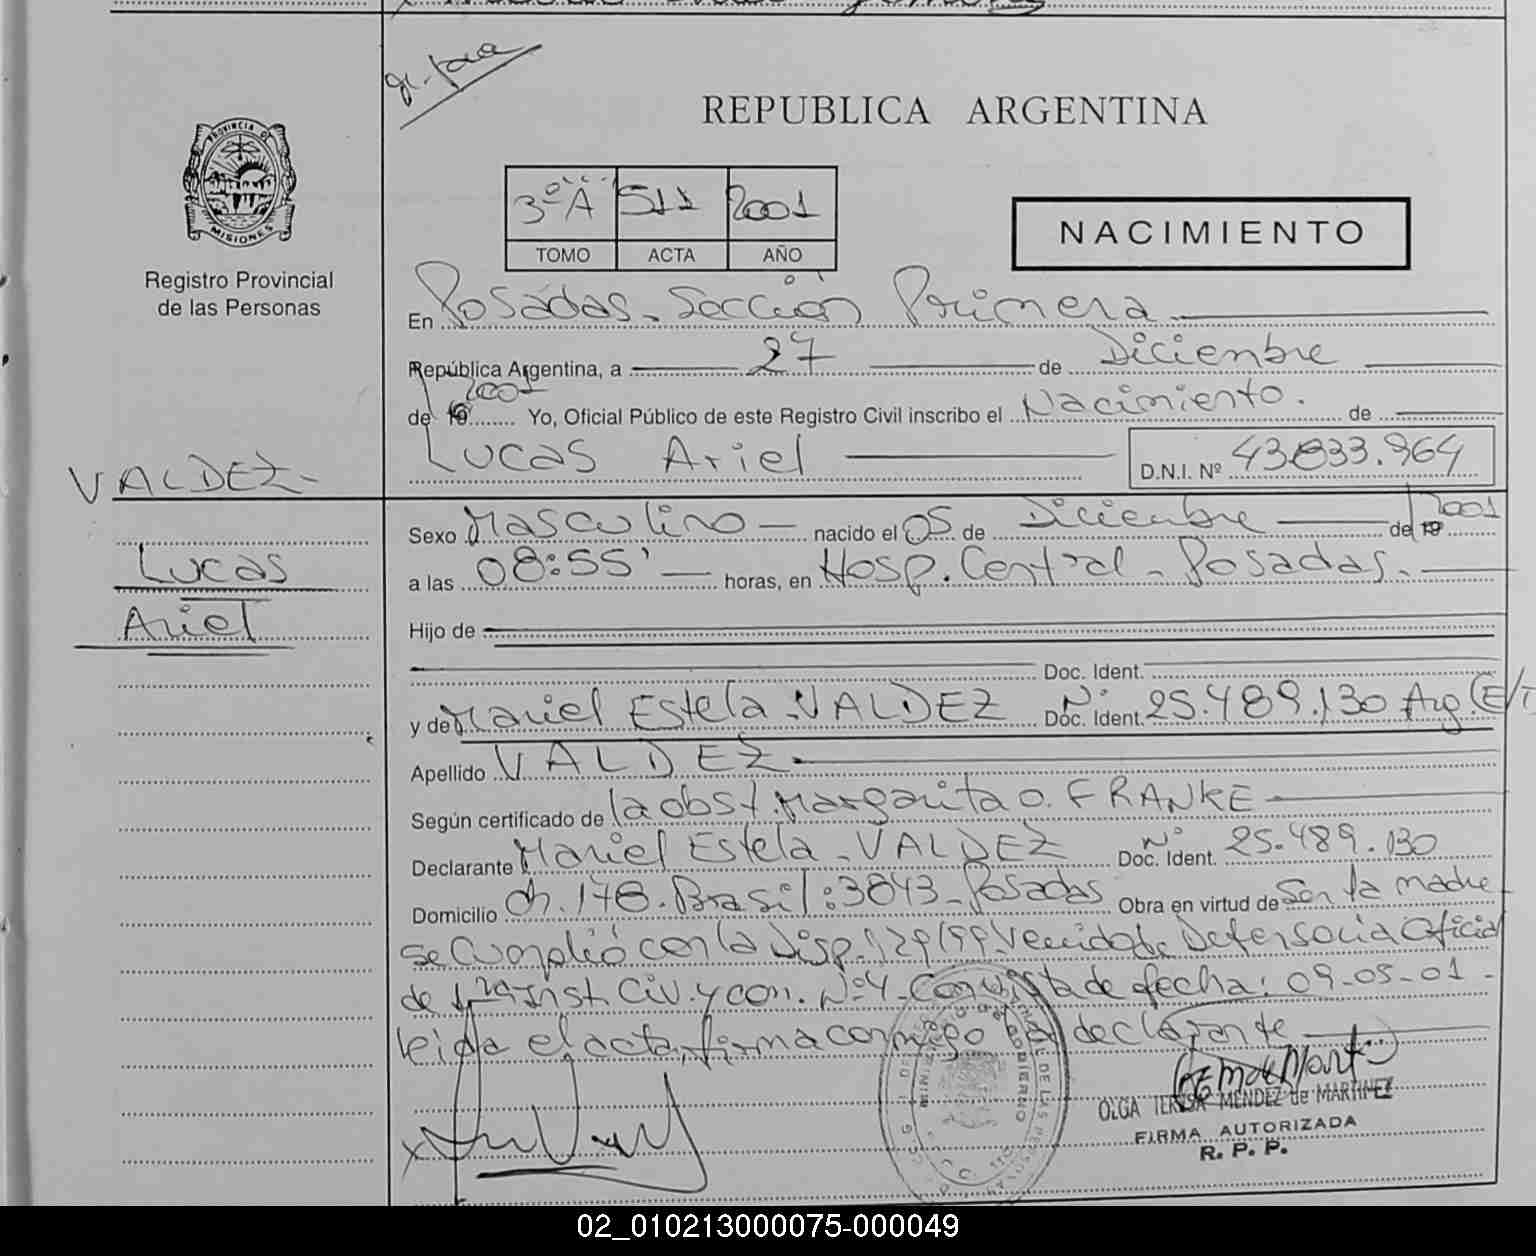 REPUBLICA ARGENTINA
PROVINCIA DE
MISIONES
Registro Provincial
de las Personas
3º A 511 2001
TOMO ACTA AÑO
NACIMIENTO
En Posadas - Sección Primera
República Argentina, a 27 de Diciembre
de 19 2001 Yo, Oficial Público de este Registro Civil inscribo el Nacimiento. de
Lucas Ariel D.N.I. Nº 43.833.964
VALDEZ -
Lucas
Ariel
Sexo Masculino nacido el 05 de Diciembre de 19 2001
a las 08:55' horas, en Hosp. Central - Posadas.
Hijo de
Doc. Ident.
y de Mariel Estela - VALDEZ Doc. Ident. Nº 25.489.130 Arg (E/T
Apellido VALDEZ
Según certificado de la obst. Margarita O. FRANKE
Declarante Mariel Estela - VALDEZ Doc. Ident. Nº 25.489.130
Domicilio Ch. 178. Brasil: 3843 - Posadas Obra en virtud de Ser la madre
se cumplió con la Disp. 129/99 Venido de Defensoria Oficial
de 1ra Inst. Civ. y Com. Nº 4 - Con vista de fecha: 09-05-01 -
leida el acta, firma conmigo la declarante
OLGA TERESA MENDEZ de MARTINEZ
FIRMA AUTORIZADA
R. P. P.
02_010213000075-000049